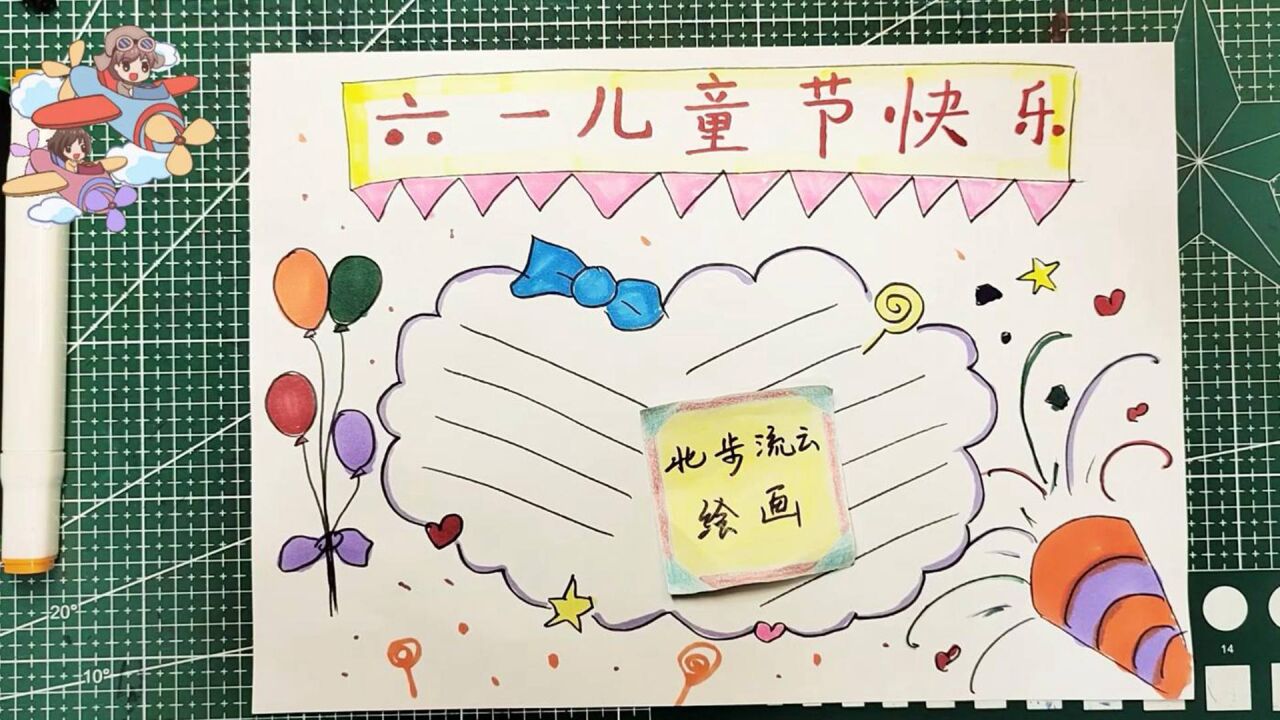 六一儿童节快乐
北步流云
绘画
20°
10°
14